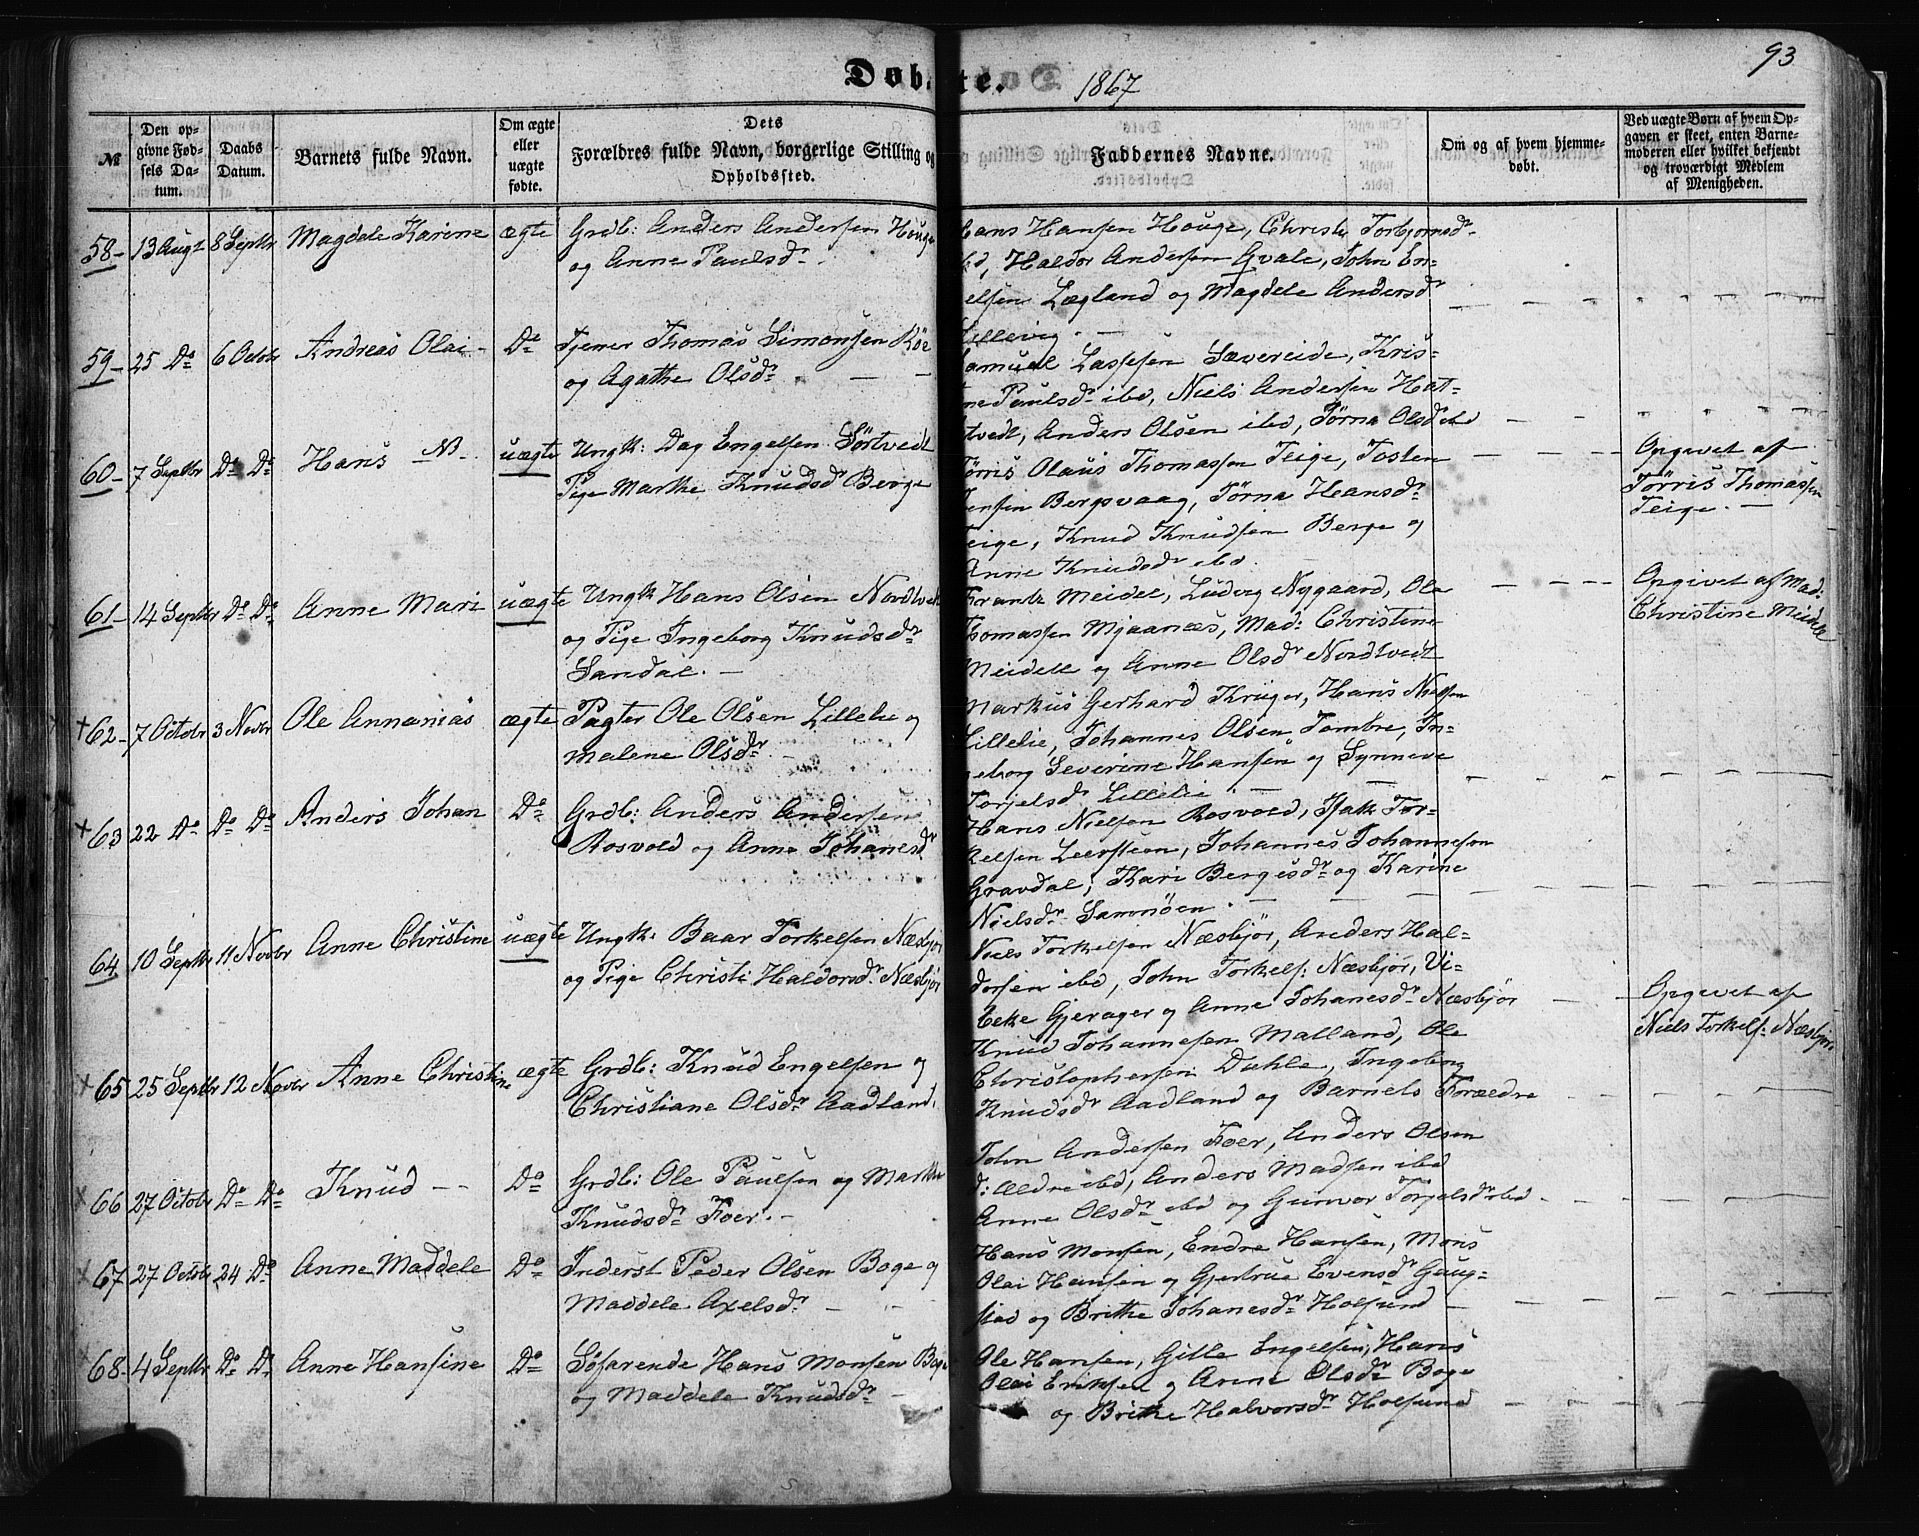 93
Døbte. 1867
№
Den op-
givne Fød-
sels Da-
tum.
Daabs
Datum.
Barnets fulde Navn.
Om ægte
eller
uægte
fødte.
Dets
Forældres fulde Navn, borgerlige Stilling og
Opholdssted.
Faddernes Navne.
Om og af hvem hjemme-
døbt.
Ved uægte Børn af hvem Op-
gaven er skeet, enten Barne-
moderen eller hvilket bekjendt
og troværdigt Medlem
af Menigheden.
58 - 13 Augt 8 Septbr Magdele Karine ægte Grdb: Anders Andersen Houge
og Anne Paulsdr.
Hans Hansen Houge, Christi Torbjornsdr
ibd, Haldor Andersen Qvale, John En-
gelsen Lægland og Magdele Andersdr
Lillevig. -
59 - 25 Do 6 Octbr Andreas Olai - Do Tjener Thomas Simonsen Röe
og Agathe Olsdr. - -
Samuel Lassesen Sævereide, Kris-
tine Paulsdr ibd, Niels Andersen Hat-
tvedt, Anders Olsen ibd, Törna Olsdr ibd
60 - 7 Septbr Do Do Hans NB uægte Ungk: Dag Engelsen Sörtvedt
Pige Marthe Knudsdr Berge
Törris Olaus Thomassen Teige, Tosten
Jensen Bergsvaag, Törna Hansdr
Teige, Knud Knudsen Berge og
Anne Knudsdr ibd.
Opgevet af
Törris Thomassen
Teige. -
61 - 14 Septbr Do Do Anne Mari uægte Ungk Hans Olsen Nordtvedt
og Pige Ingeborg Knudsdr
Sandal. -
Frantz Meidel, Ludvig Nygaard, Ole
Thomassen Mjaanæs, Mad: Christine
Meidell og Anne Olsdr Nordtvedt
Opgivet af Mad.
Christine Meidell
+ 62 - 7 Octobr 3 Novbr Ole Annanias ægte Pagter Ole Olsen Lillelie og
Malene Olsdr. -
Markus Gerhard Krüger, Hans Nielsen
Lillelie, Johannes Olsen Tombre, In-
geborg Severine Hansen og Synneve
Torjelsdr Lillelie. -
+ 63 22 Do Do Do Anders Johan Do Grdb: Anders Andersen
Rosvold og Anne Johanesdr
Hans Nielsen Rosvold, Isak Tor-
kelsen Leersteen, Johannes Johannesen
Gravdal, Kari Bergesdr og Karine
Nielsdr Samnöen.
64 10 Septbr 11 Novbr Anne Christine uægte Ungk: Baar Torkelsen Næsbjör
og Pige Christi Haldorsdr Næsbjör
Niels Torkelsen Næsbjör, Anders Hal-
dorsen ibd, John Torkels: Næsbjör, Vi-
beke Gjerager og Anne Johanesdr Næsbjör
Opgevet af
Niels Torkels: Næsbjör.
× 65 25 Septbr 12 Novbr Anne Christine ægte Grdb: Knud Engelsen og
Christiane Olsdr Aadland.
Knud Johannesen Malland, Ole
Christophersen Dahle, Ingeborg
Knudsdr Aadland og Barnets Forældre
× 66 27 Octobr Do Do Knud - - Do Grdb: Ole Paulsen og Marthe
Knudsdr Foer. -
John Andersen Foer, Anders Olsen
d: Ældre ibd, Anders Madsen ibd
Anne Olsdr ibd og Gunvor Torjelsdr ibd
× 67 27 Octobr 24 Do Anne Maddele Do Inderst Peder Olsen Boge og
Maddele Axelsdr. -
Hans Monsen, Endre Hansen, Mons
Olai Hansen og Gjertrue Evensdr Gaug-
stad og Brithe Johanesdr Holsund
68 - 4 Septbr Do Do Anne Hansine Do Söfarende Hans Monsen Boge
og Maddele Knudsdr -
Ole Hansen, Gitle Engelsen, Hans
Olai Eriksen og Anne Olsdr Boge
og Brithe Halvorsdr Holsund